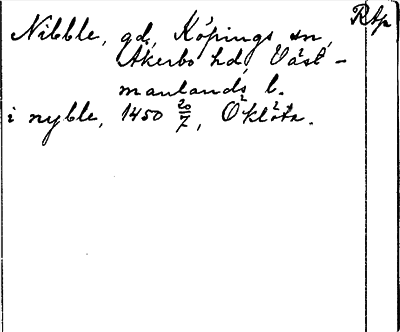 Rtp
Nibble, gd, Köpings sn,
Åkerbo hd, Väst-
manlands l.
i nyble, 1450 20/7, Öklöta.